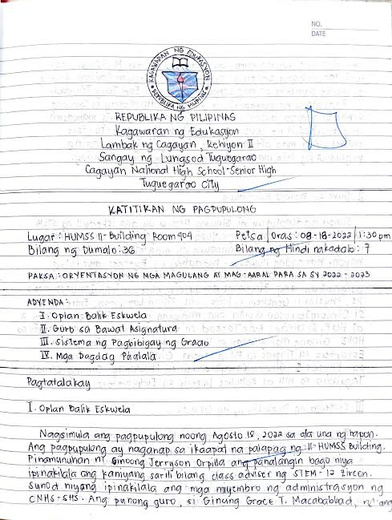 NO.
DATE
KAGAWARAN NG EDUKASYON
REPUBLIKA NG PILIPINAS
REPUBLIKA NG PILIPINAS
Kagawaran ng Edukasyon
Lambak ng Cagayan, Rehiyon II
Sangay ng Lungsod Tuguegarao
Cagayan National High School-Senior High
Tuguegarao City
KATITIKAN NG PAGPUPULONG
Lugar: HUMSS 11-Building Room 404 Petsa/Oras: 08-18-2022/1:30 pm
Bilang ng Dumalo: 36 Bilang ng Hindi nakadalo: 7
PAKSA: ORYENTASYON NG MGA MAGULANG AT MAG-AARAL PARA SA SY 2022-2023
ADYENDA:
I. Oplan Balik Eskwela
II. Guro sa Bawat Asignatura
III. Sistema ng Pagbibigay ng Grado
IV. Mga Dagdag Paalala
Pagtatalakay
I. Oplan Balik Eskwela
Nagsimula ang pagpupulong noong Agosto 18, 2022 sa ala una ng hapon.
Ang pagpupulong ay naganap sa ikaapat na palapag ng 11-HUMSS Building.
Pinamunuhan ni Ginoong Jerryson Orpilla ang panalangin bago niya
ipinakilala ang kaniyang sarili bilang class adviser ng STEM-12 Zircon.
Sunod niyang ipinakilala ang mga miyembro ng administrasyon ng
CNHS-SHS. Ang punong guro, si Ginang Grace T. Macababbad,